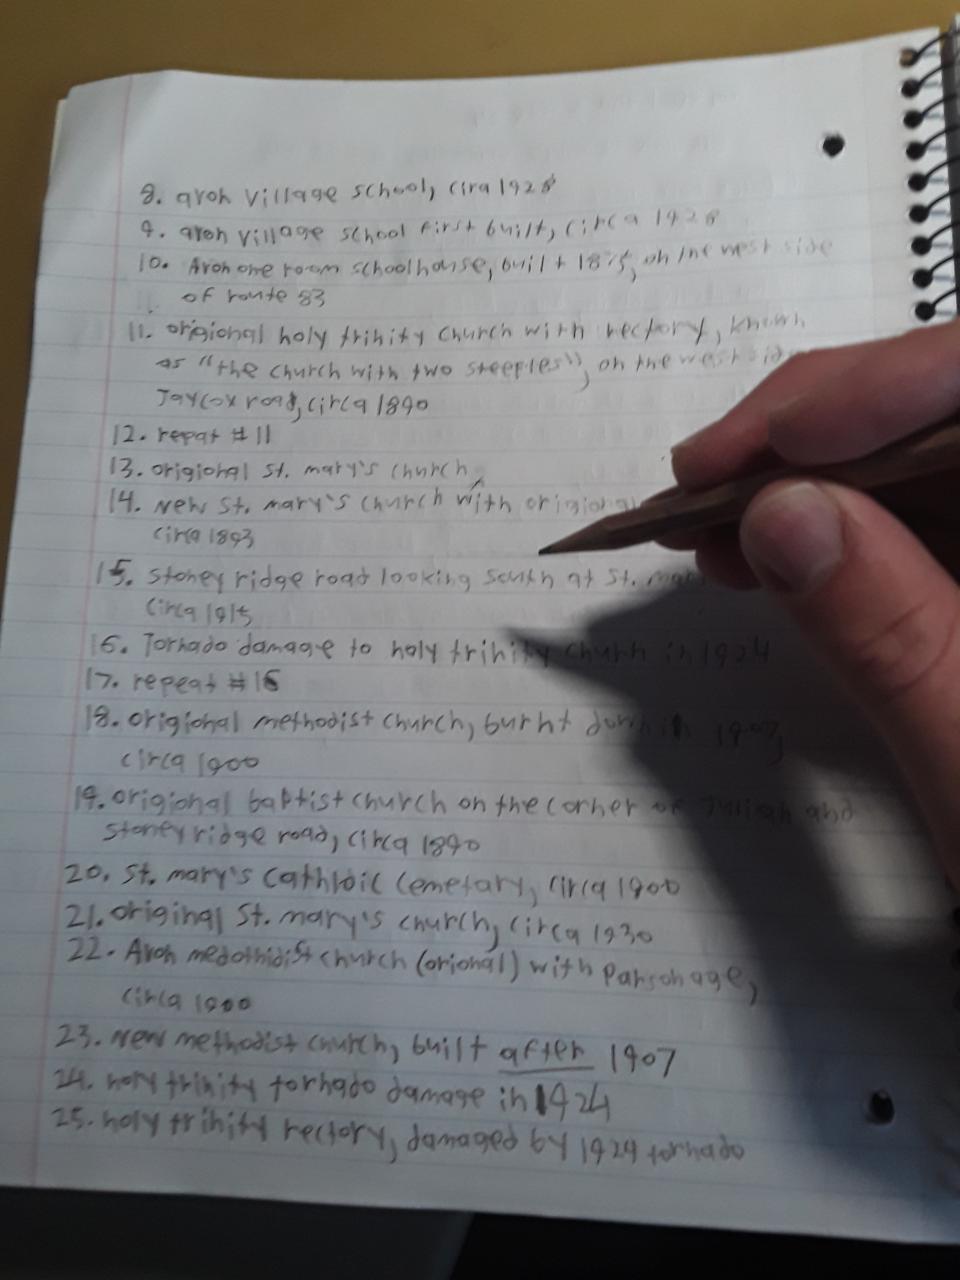 8. avon village school, cira 1928
9. avon village school first built, circa 1928
10. Avon one room schoolhouse, built 1875, on the west side
of route 83
11. origional holy trinity church with rectory, known
as "the church with two steeples", on the west
Jaycox road, circa 1890
12. repat #11
13. origional st. mary's church
14. new St. mary's church with origional
circa 1893
15. stoney ridge road looking south at st.
circa 1915
16. Tornado damage to holy trinity in 1924
17. repeat #16
18. origional methodist church, burnt down in 1907,
circa 1900
19. origional baptist church on the corner of and
stoney ridge road, circa 1890
20. st. mary's cathloic cemetary, circa 1900
21. original St. mary's church, circa 1930
22. Avon church (orional) with parsonage,
circa 1900
23. new methodist church, built after 1907
24. holy trinity tornado damage in 1924
25. holy trinity rectory, damaged by 1924 tornado